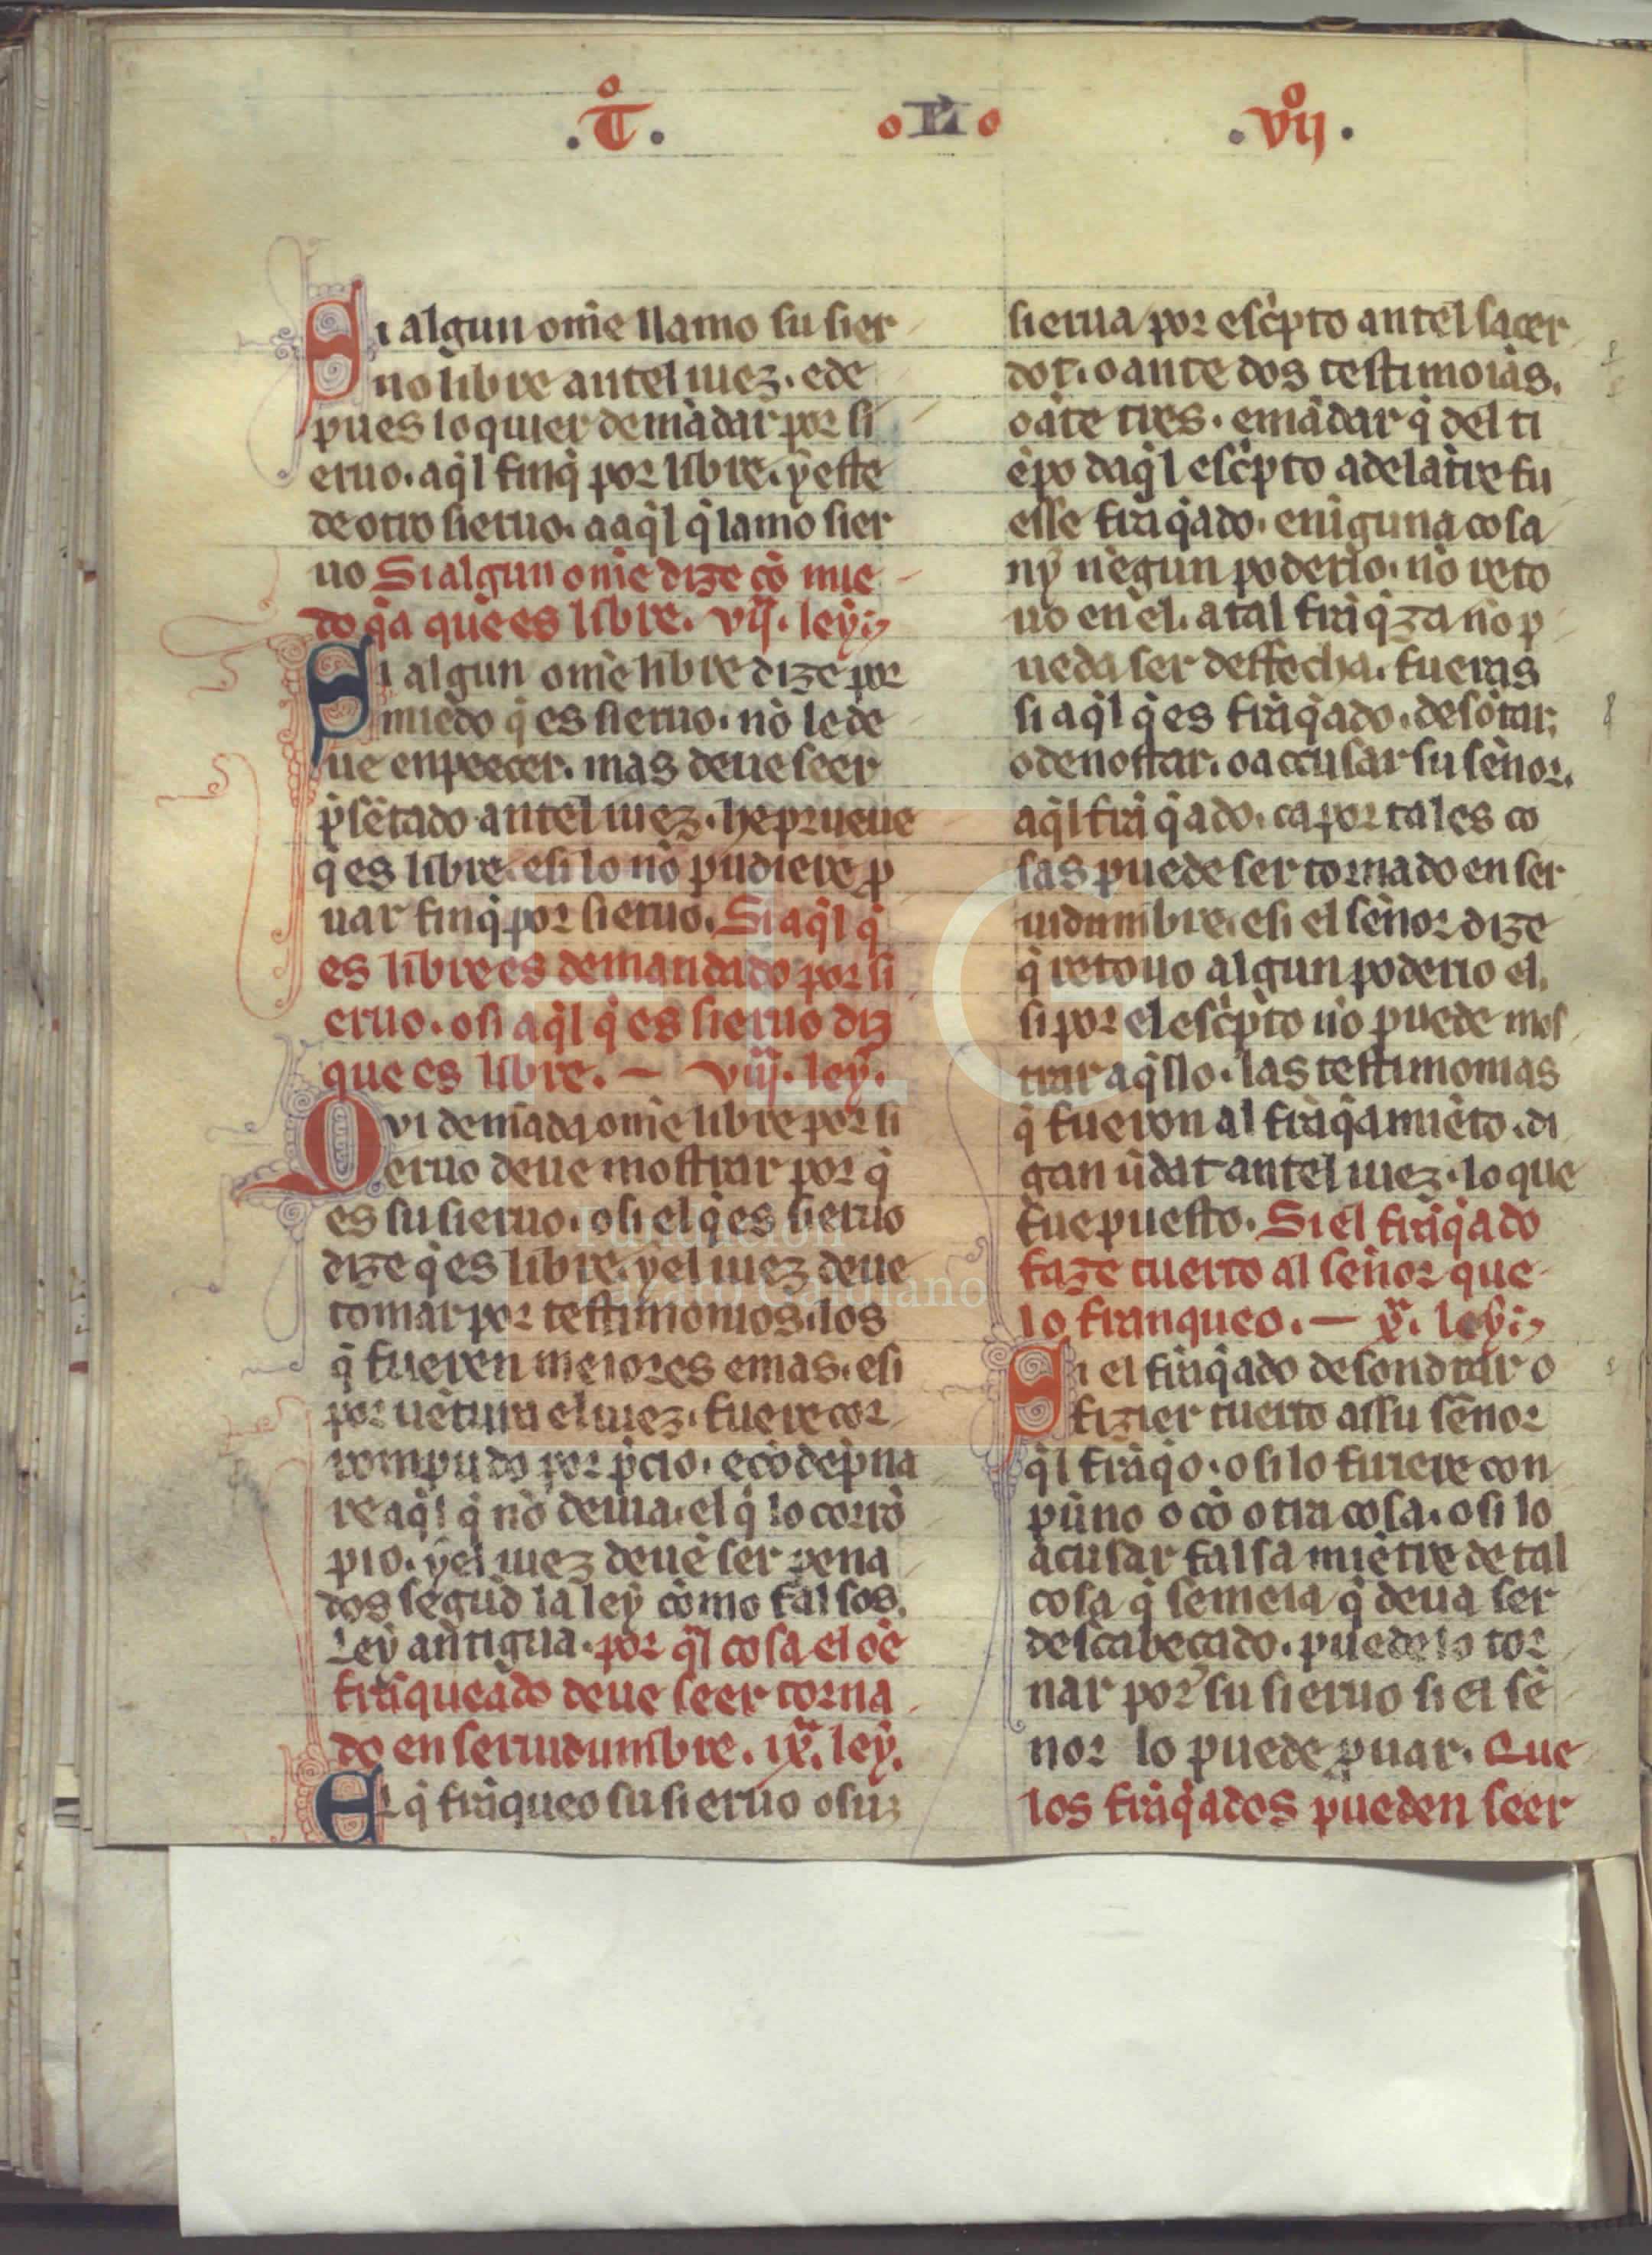 .T̊. o L̃I o .vıj̊.
Si algun om̃e llamo su sier
uo libre antel iuez. e de
pues lo quier demãdar por si
eruo. aq̃l finq̃ por libre. ẏ este
de otro sieruo. a aq̃l q̃ lamo sier
uo Si algun om̃e dize cõ mie
do q̃a que es libre. vıȷ̈. leẏ
Si algun om̃e libre dize por
miedo q̃ es sieruo. nõ le de
ue enpeecer. mas deue seer
p̃sẽtado antel iuez. he prueue
q̃ es libre. e si lo nõ pudiere ꝓ
uar finq̃ por sieruo. Si aq̃l q̃
es libre es demandado por si
eruo. o si aq̃l q̃ es sieruo diz
que es libre. — vııȷ̈. leẏ.
Qvi demãda om̃e libre por si
eruo deue mostrar por q̃
es su sieruo. o si el q̃ es sieruo
dize q̃ es libre. ẏ el iuez deue
tomar por testimonios. los
q̃ fueren meiores e mas. e si
por uẽtura el iuez. fuere cor
rompudo por p̃cio. e cõdep̃na
re aq̃l q̃ nõ deuia. el q̃ lo corrõ
pio. ẏ el iuez deue ser pena
dos segũd la leẏ cõmo falsos.
Leẏ antigua. por q̃l cosa el oẽ
frãqueado deue seer torna
do en seruidumbre. ıx̃. leẏ.
El q̃ frãqueo su sieruo o su
sierua por esc̃pto antel sacer
dot̃. o ante dos testimoiãs.
o ãte tres. e mãdar q̃ del ti
ẽpo daq̃l esc̃pto adelãtre fu
esse frãq̃ado. e nĩguna cosa
nẏ nẽgun poderio. nõ reto
uo en el. atal frãq̃za nõ p
ueda ser deffecha. fueras
si aq̃l q̃ es frãq̃ado. desõrar.
o denostar. o accusar su sẽnor.
aq̃l frãq̃ado. ca por tales co
sas puede ser tornado en ser
uidumbre. e si el sẽnor dize
q̃ retouo algun poderio el.
si por el esc̃pto nõ puede mos
trar aq̃llo. las testimonias
q̃ fueron al frãq̃amiẽto. di
gan ũdat antel iuez. lo que
fue puesto. Si el frãq̃ado
faze tuerto al sẽnor que
lo franqueo. — x̃. leẏ
Si el frãq̃ado desondrar o
fizier tuerto assu sẽnor
q̃l frãq̃o. o si lo firiere con
pũno o cõ otra cosa. o si lo
acusar falsa miẽtre de tal
cosa q̃ semeia q̃ deua ser
descabeçado. puede lo tor
nar por su sieruo si el sẽ
nor lo puede ꝓuar. Que
los frãq̃ados pueden seer
FLG
Fundación
Lázaro Galdiano